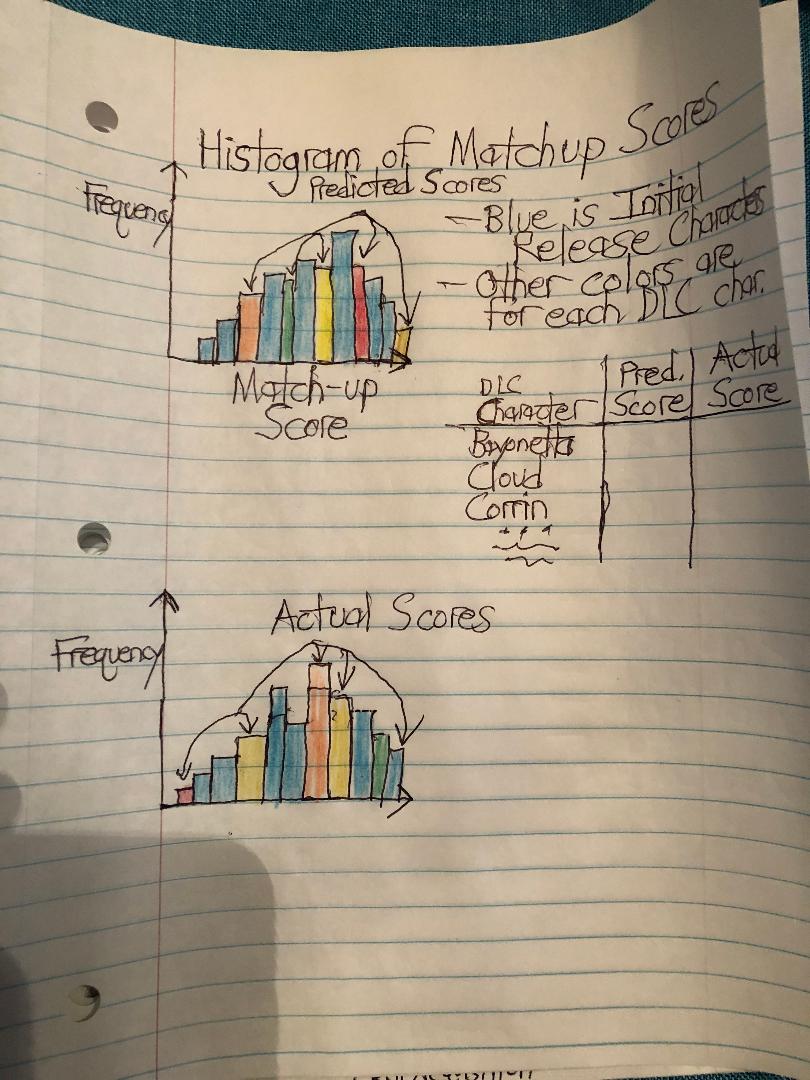 Histogram of Matchup Scores
Predicted Scores
Frequency
- Blue is Initial
Release Characters
- Other colors are
for each DLC char.
Match-up
Score
DLC
Character
Pred.
Score
Actual
Score
Bayonetta
Cloud
Corrin
...
Actual Scores
Frequency